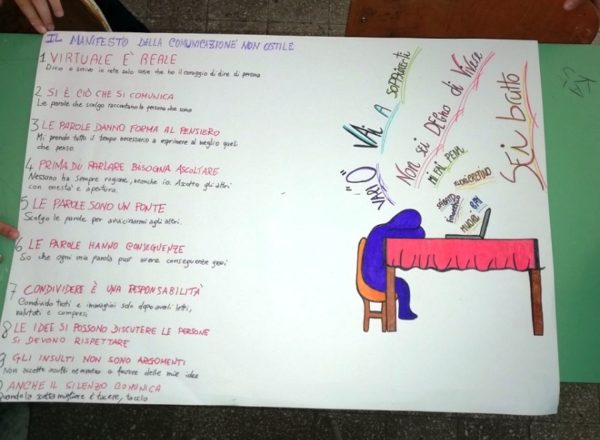 IL MANIFESTO DALLA COMUNICAZIONE NON OSTILE
1 VIRTUALE E' REALE
Dico o scrivo in rete solo cose che ho il coraggio di dire di persona
2 SI È CIÒ CHE SI COMUNICA
Le parole che scelgo raccontano la persona che sono
3 LE PAROLE DANNO FORMA AL PENSIERO
Mi prendo tutto il tempo necessario a esprimere al meglio quel
che penso
4 PRIMA DI PARLARE BISOGNA ASCOLTARE
Nessuno ha sempre ragione, neanche io. Ascolto gli altri
con onestà e apertura.
5 LE PAROLE SONO UN PONTE
Scelgo le parole per avvicinarmi agli altri.
6 LE PAROLE HANNO CONSEGUENZE
So che ogni mia parola può avere conseguenze gravi
7 CONDIVIDERE È UNA RESPONSABILITÀ
Condivido testi e immagini solo dopo averli letti,
valutati e compresi
8 LE IDEE SI POSSONO DISCUTERE LE PERSONE
SI DEVONO RISPETTARE
9 GLI INSULTI NON SONO ARGOMENTI
Non accetto insulti nemmeno a favore delle mie idee
ANCHE IL SILENZIO COMUNICA
Quando la scelta migliore è tacere, taccio
VAI A
Non sei Degno di Vivere
MI FAI PENA
Sei brutto